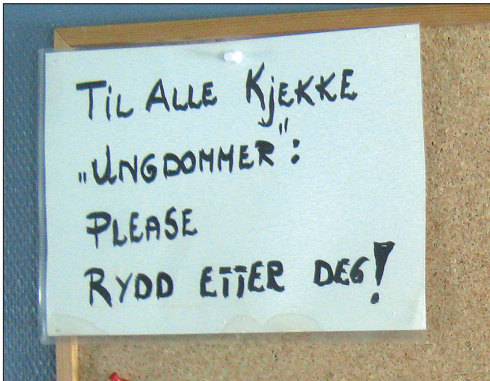 TiL ALLE KjEKKE
„UNGDOMMER":
PLEASE
RYDD ETTER DEG!